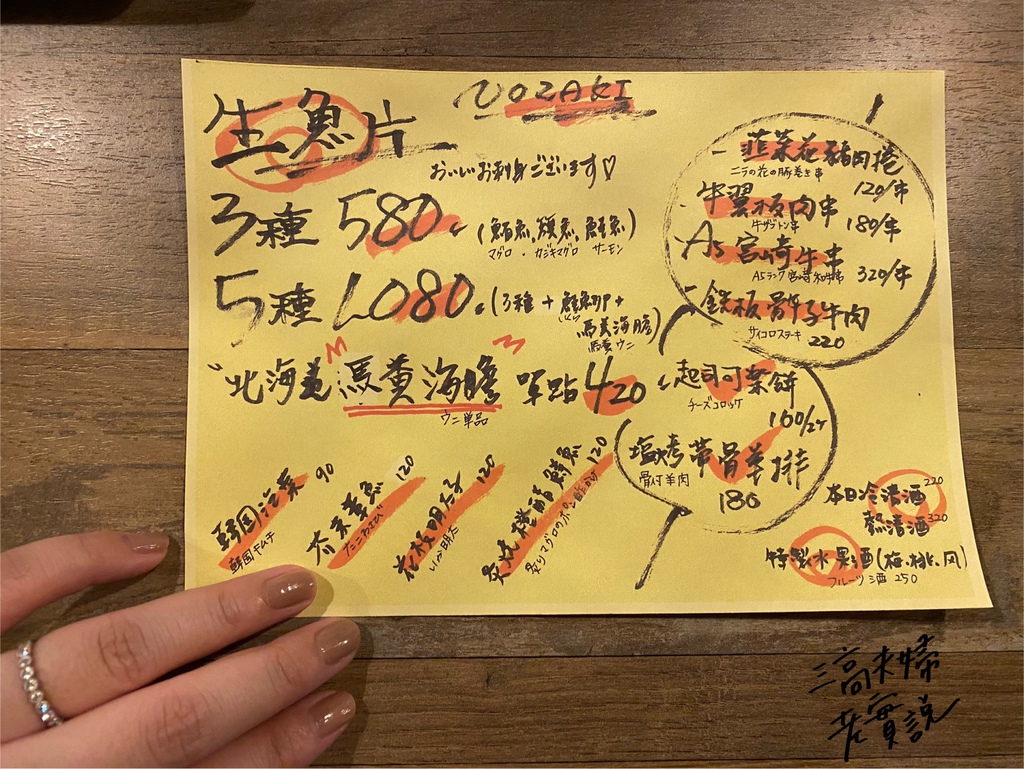 NOZAKI
生魚片
おいしいお刺身ございます♡
3種 580 (鮪魚,旗魚,鮭魚)
マグロ・カジキマグロ サーモン
5種 1,080 (3種+鮭魚卵+
いくら
馬糞海膽)
馬糞ウニ
北海道馬糞海膽 單點 420
ウニ単品
韓国泡菜 90
韓国キムチ
芥末章魚 120
たこわさび
花枝明太子 120
いか明太
炙燒橙醋鮪魚 120
炙りマグロのポン酢
- 韮菜花豬肉捲
ニラの花の豚巻き串
120/串
- 牛翼板肉串
牛ザブトン串
180/串
- A5宮崎牛串
A5ランク宮崎和牛串
320/串
- 鉄板骰子牛肉
サイコロステーキ
220
起司可樂餅
チーズコロッケ
160/2ケ
塩烤帶骨羊排
骨付羊肉
180
本日冷清酒 220
熱清酒 320
特製水果酒(梅、桃、
フルーツ酒 250
三高夫婦
老實說